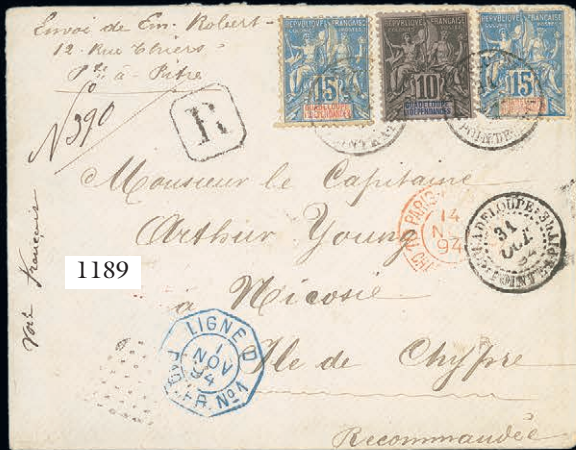 Envoi de Em. Robert -
12 - Rue Thiers
Pte à - Pitre
N 390
R
RÉPUBLIQUE FRANÇAISE
15
RÉPUBLIQUE FRANÇAISE
10
GUADELOUPE
ET DÉPENDANCES
RÉPUBLIQUE FRANÇAISE
15
Monsieur le Capitaine
Arthur Young
à Nicosie
Ile de Chypre
Recommandée
voie français
1189
PARIS
14
94
GUADELOUPE
31
OCT
94
POINTE A PITRE
LIGNE D
1
NOV
94
PAQ. FR. No 1